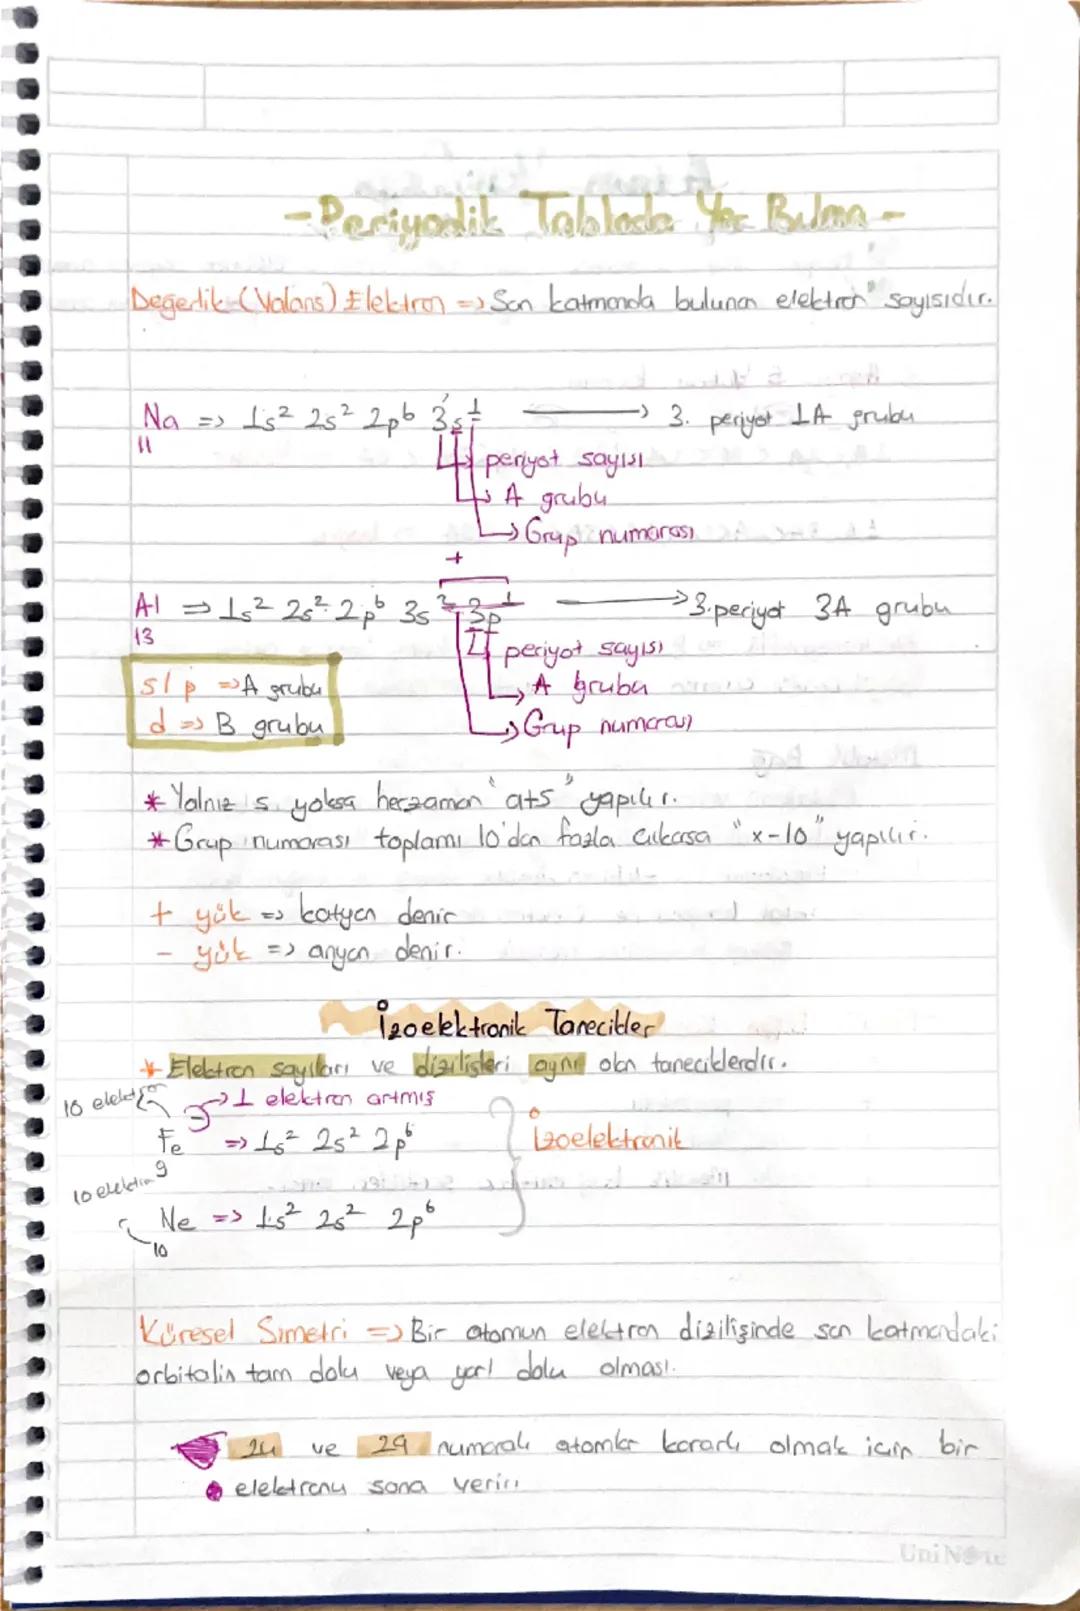 -Periyodik Tabloda Yer Bulma-
Değerlik (Valans) Elektron => Son katmanda bulunan elektron sayısıdır.
Na => 1s² 2s² 2p⁶ 3s¹ → 3. periyot 1A grubu
11
periyot sayısı
A grubu
Grup numarası
+
Al => 1s² 2s² 2p⁶ 3s² 3p¹ → 3.periyot 3A grubu
13
periyot sayısı
s/p => A grubu
A grubu
d => B grubu
Grup numarası
* Yalnız s yoksa herzaman "at5" yapılır.
* Grup numarası toplamı 10'dan fazla çıkarsa "x-10" yapılır.
+ yük => katyon denir
- yük => anyon denir.
İzoelektronik Tanecikler
* Elektron sayıları ve dizilişleri aynı olan taneciklerdir.
10 elektron
→ 1 elektron artmış
Fe => 1s² 2s² 2p⁶
9
İzoelektronik
10 elektron
Ne => 1s² 2s² 2p⁶
10
Küresel Simetri => Bir atomun elektron dizilişinde son katmandaki
orbitalin tam dolu veya yarı dolu olması.
24 ve 29 numaralı atomlar kararlı olmak için bir
elektronu sona verir.
UniNote